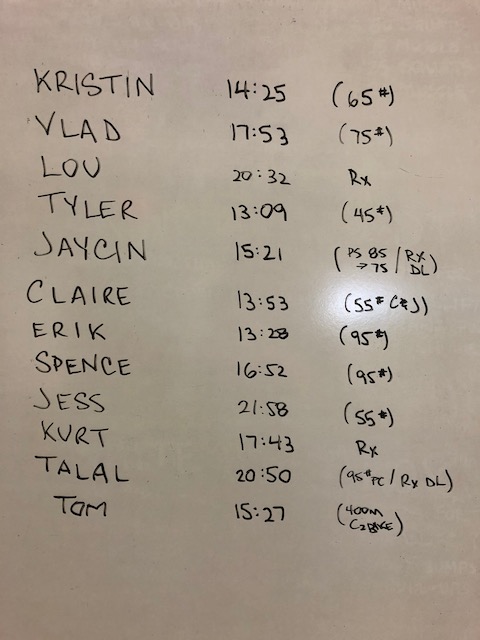 KRISTIN 14:25 (65#)
VLAD 17:53 (75#)
LOU 20:32 Rx
TYLER 13:09 (45#)
JAYCIN 15:21 (PS 85 → 75 / RX DL)
CLAIRE 13:53 (55# C&J)
ERIK 13:28 (95#)
SPENCE 16:52 (95#)
JESS 21:58 (55#)
KURT 17:43 Rx
TALAL 20:50 (95# PC / Rx DL)
TOM 15:27 (400m C2BIKE)